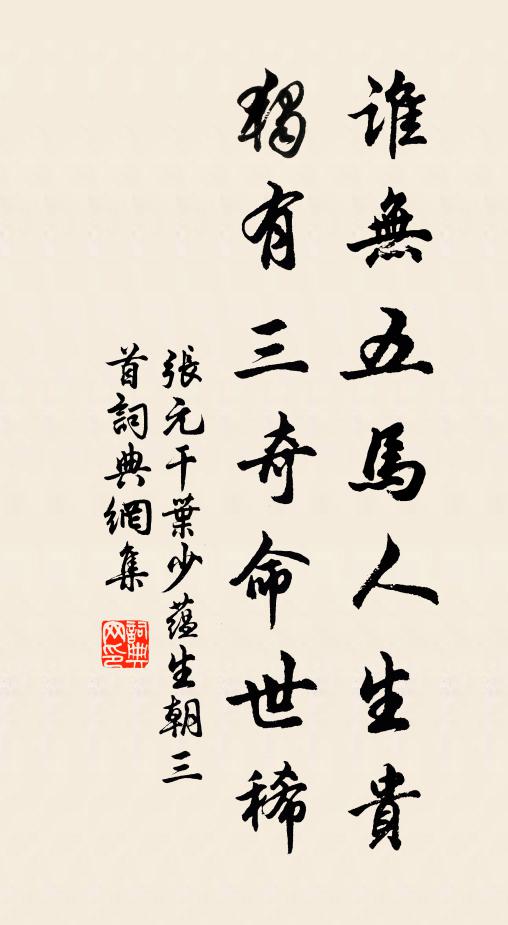 誰無五馬人生貴
獨有三奇命世稀
張元干葉少蘊生朝三
首詞典網集
詞典網印